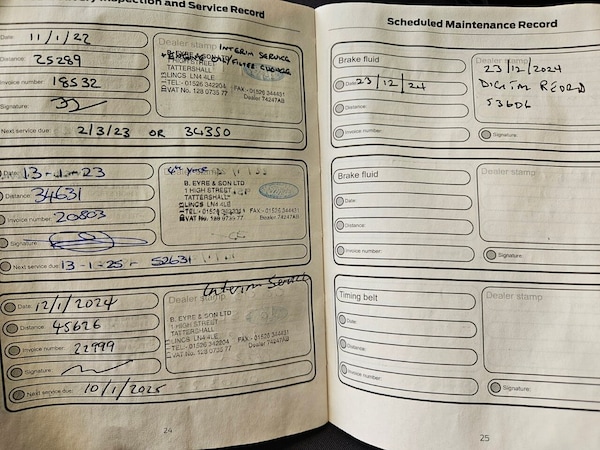 Inspection and Service Record
Date: 11/1/22
Distance: 25289
Invoice number: 18532
Signature:
Next service due: 2/3/23 OR 34350
Dealer stamp INTERIM SERVICE
B. EYRE & SON LTD
1 HIGH STREET
TATTERSHALL
LINCS LN4 4LE
TEL - 01526 342204 FAX - 01526 344431
VAT No. 128 0735 77 Dealer 74247AB
Date: 13-1-23
Distance: 34631
Invoice number: 20803
Signature:
Next service due: 13-1-25 - 52631
4th year
B. EYRE & SON LTD
1 HIGH STREET
TATTERSHALL
LINCS LN4 4LE
TEL - 01526 342204 FAX - 01526 344431
VAT No. 128 0735 77 Dealer 74247AB
Date: 12/1/2024
Distance: 45626
Invoice number: 22999
Signature:
Next service due: 10/1/2025
Interim Service
Dealer stamp
B. EYRE & SON LTD
1 HIGH STREET
TATTERSHALL
LINCS LN4 4LE
TEL - 01526 342204 FAX - 01526 344431
VAT No. 128 0735 77 Dealer 74247AB
24
Scheduled Maintenance Record
Brake fluid
Date: 23/12/24
Distance:
Invoice number:
Dealer stamp
23/12/2024
DIGITAL RECORD
53606
Signature:
Brake fluid
Date:
Distance:
Invoice number:
Dealer stamp
Signature:
Timing belt
Date:
Distance:
Invoice number:
Dealer stamp
Signature:
25